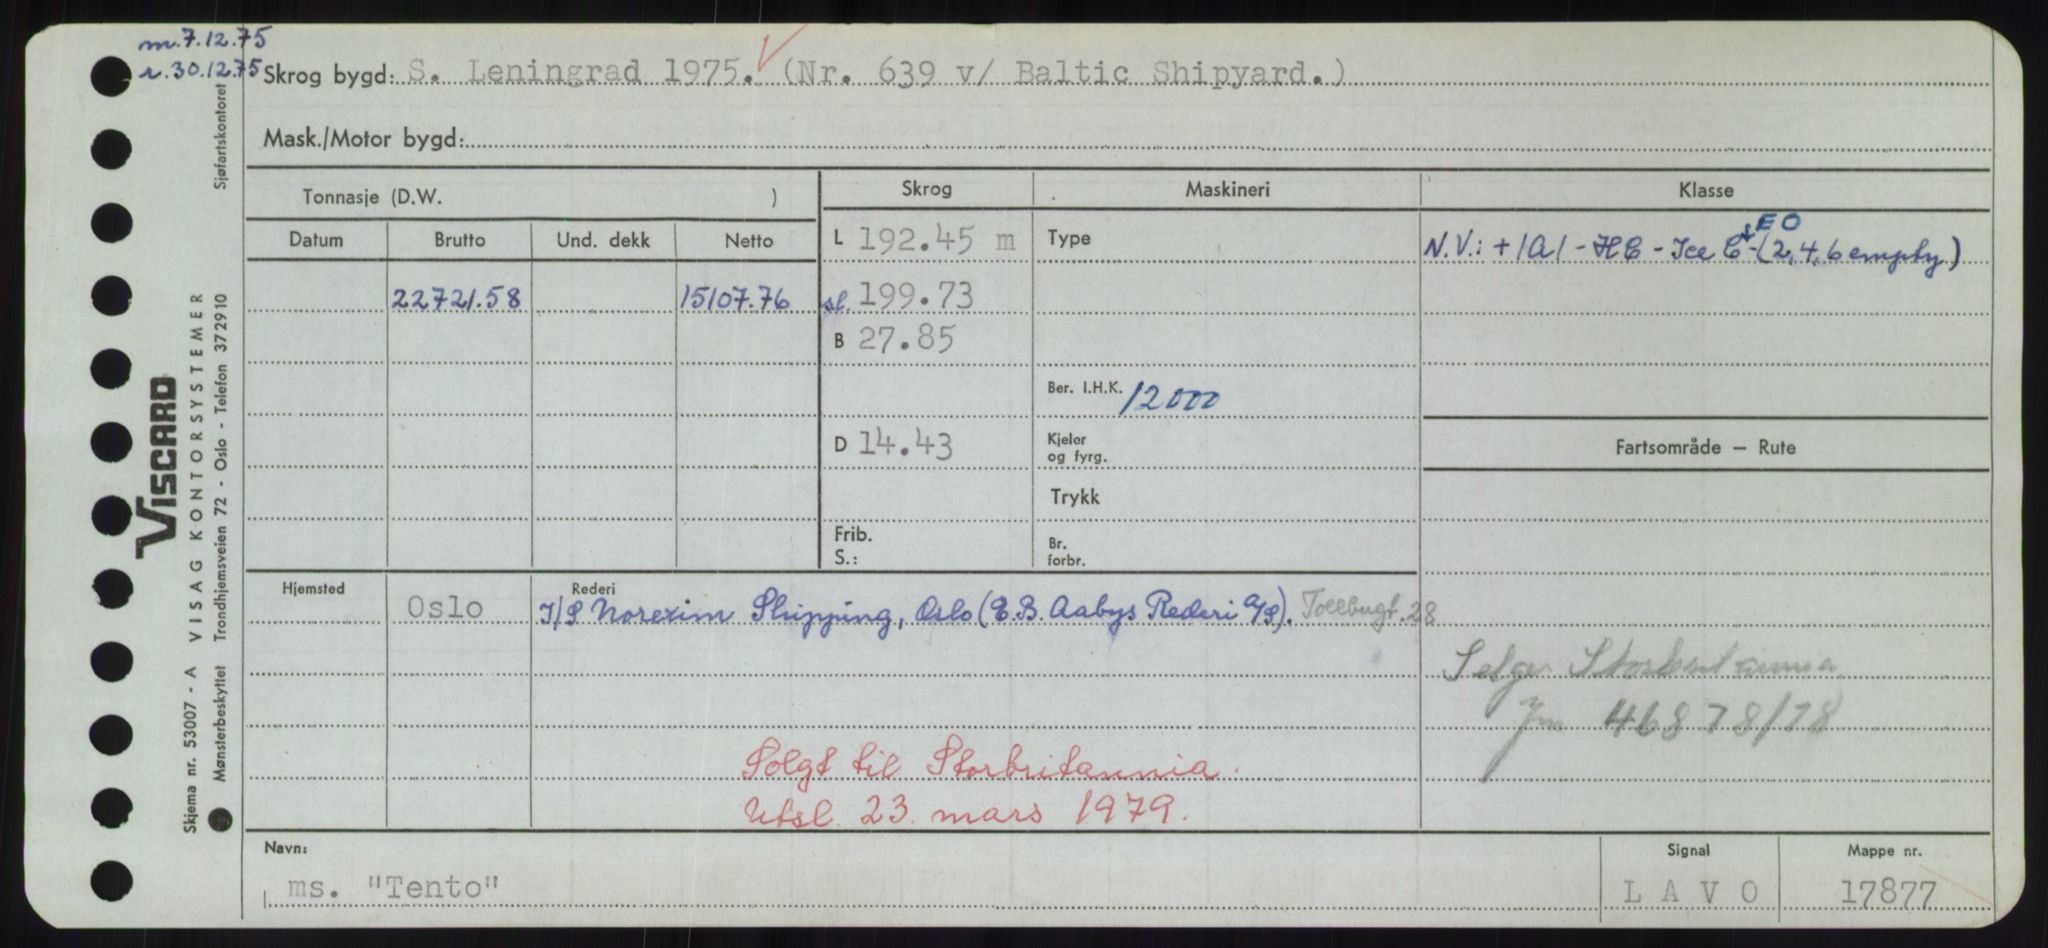 m.7.12.75
r.30.12.75
Skrog bygd: S. Leningrad 1975. (Nr. 639 v/ Baltic Shipyard.)
Mask./Motor bygd:
Tonnasje (D.W. )
Skrog
Maskineri
Klasse
Datum
Brutto
Und. dekk
Netto
L 192.45 m
Type
EO
N.V.: + 1A1 - HC - Ice C - (2, 4, 6 empty)
22721.58
15107.76
sl. 199.73
B 27.85
Ber. I.H.K. 12000
D 14.43
Kjeler
og fyrg.
Fartsområde — Rute
Trykk
Frib.
S.:
Br.
forbr.
Hjemsted
Oslo
Rederi
I/S Norexim Shipping, Oslo (E.B. Aabys Rederi A/S). Tollbugt. 28
Selges Storbritannia
Jnr 46878/78
Solgt til Storbritannia.
Utsl. 23. mars 1979.
Navn:
ms. "Tento"
Signal
L A V O
Mappe nr.
17877
Skjema nr. 53007 - A VISAG KONTORSYSTEMER
VISCARD
Mønsterbeskyttet Trondhjemsveien 72 - Oslo - Telefon 372910
Sjøfartskontoret